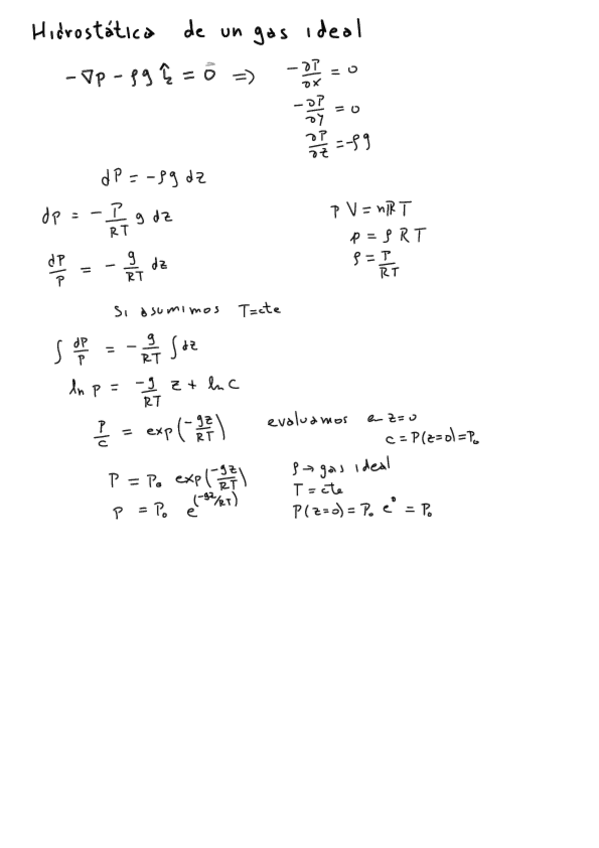 Hidrostática de un gas ideal
-∇p - ρg î_z = 0̄ ⇒ -∂P/∂x = 0
-∂P/∂y = 0
∂P/∂z = -ρg
dP = -ρg dz
dp = - P/RT g dz    P V = nRT
p = ρ R T
dP/P = - g/RT dz    ρ = P/RT
Si asumimos T=cte
∫ dP/P = - g/RT ∫dz
ln p = -g/RT z + ln C
P/C = exp(-gz/RT)    evaluamos a z=0
C = P(z=0)=P₀
P = P₀ exp(-gz/RT)    ρ → gas ideal
T = cte
P = P₀ e^(-gz/RT)    P(z=0) = P₀ e⁰ = P₀